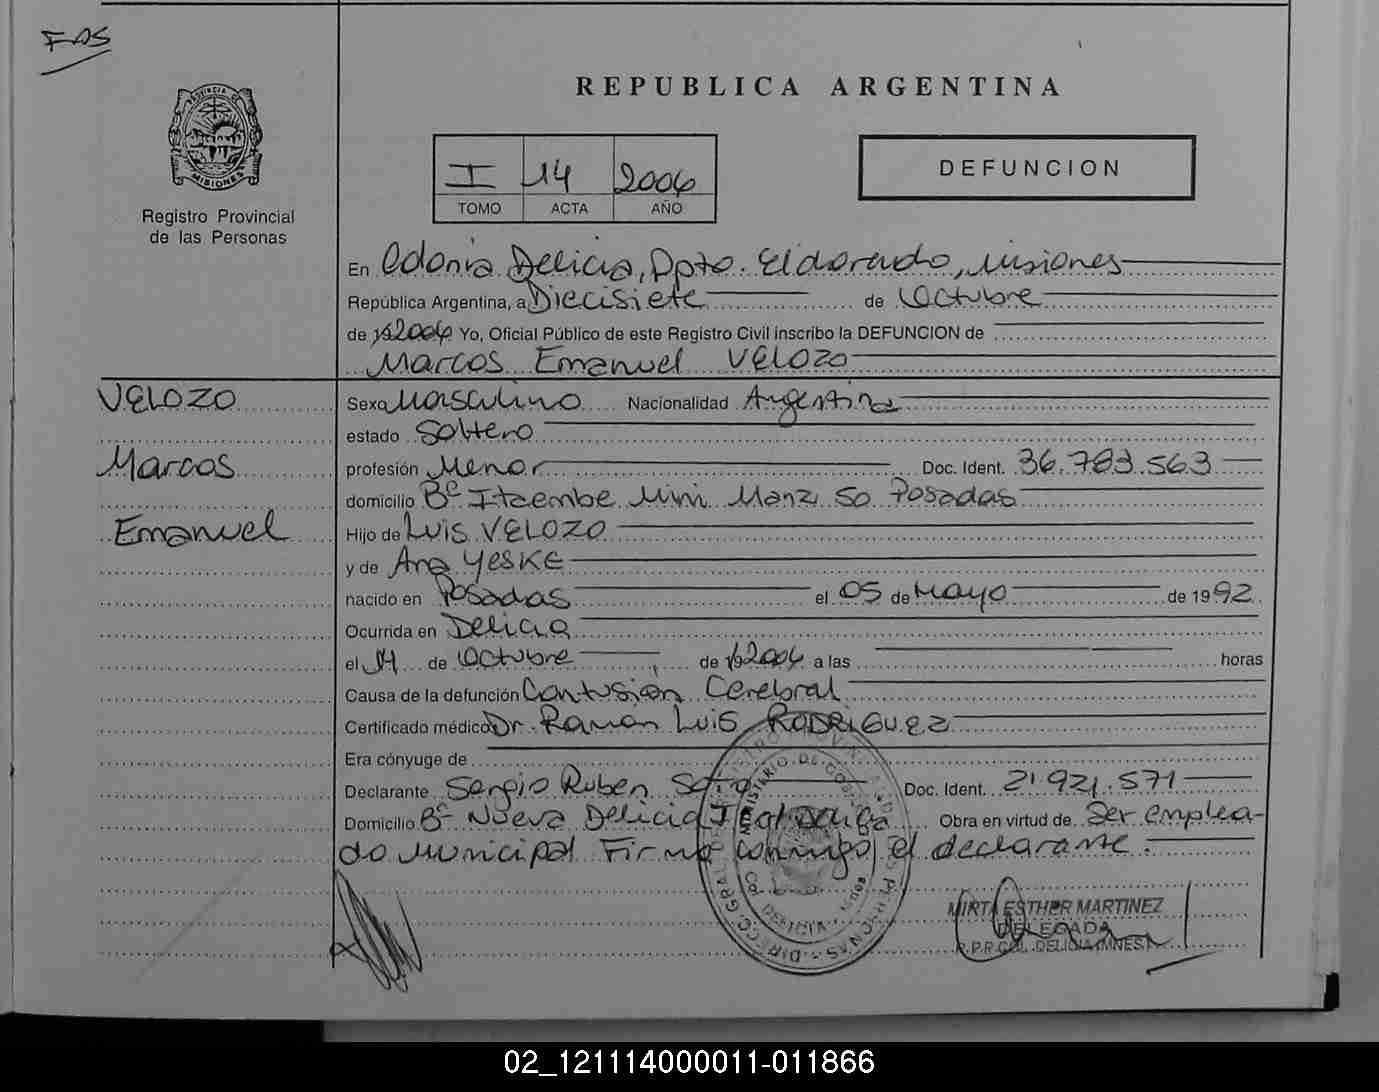 FAS
REPUBLICA ARGENTINA
PROVINCIA DE
MISIONES
Registro Provincial
de las Personas
I 14 2006
TOMO ACTA AÑO
DEFUNCION
En Colonia Delicia, Dpto. Eldorado, Misiones
República Argentina, a Diecisiete de Octubre
de 19 2006 Yo, Oficial Público de este Registro Civil inscribo la DEFUNCION de
Marcos Emanuel VELOZO
VELOZO
Marcos
Emanuel
Sexo Masculino Nacionalidad Argentina
estado Soltero
profesión Menor Doc. Ident. 36.783.563
domicilio Bº Itaembe Mini Manz. 50 Posadas
Hijo de Luis VELOZO
y de Ana YESKE
nacido en Posadas el 05 de Mayo de 1992
Ocurrida en Delicia
el 14 de Octubre de 19 2006 a las horas
Causa de la defunción Contusión Cerebral
Certificado médico Dr. Ramón Luis RODRIGUEZ
Era cónyuge de
Declarante Sergio Ruben Doc. Ident. 21.921.571
Domicilio Bº Nueva Delicia Obra en virtud de Ser emplea-
do Municipal Firma conmigo el declarante.
MINISTERIO DE GOBIERNO
Col. DELICIA - Mnes
MIRTA ESTHER MARTINEZ
DELEGADA
R.P.P. COL. DELICIA (MNES.)
02_121114000011-011866